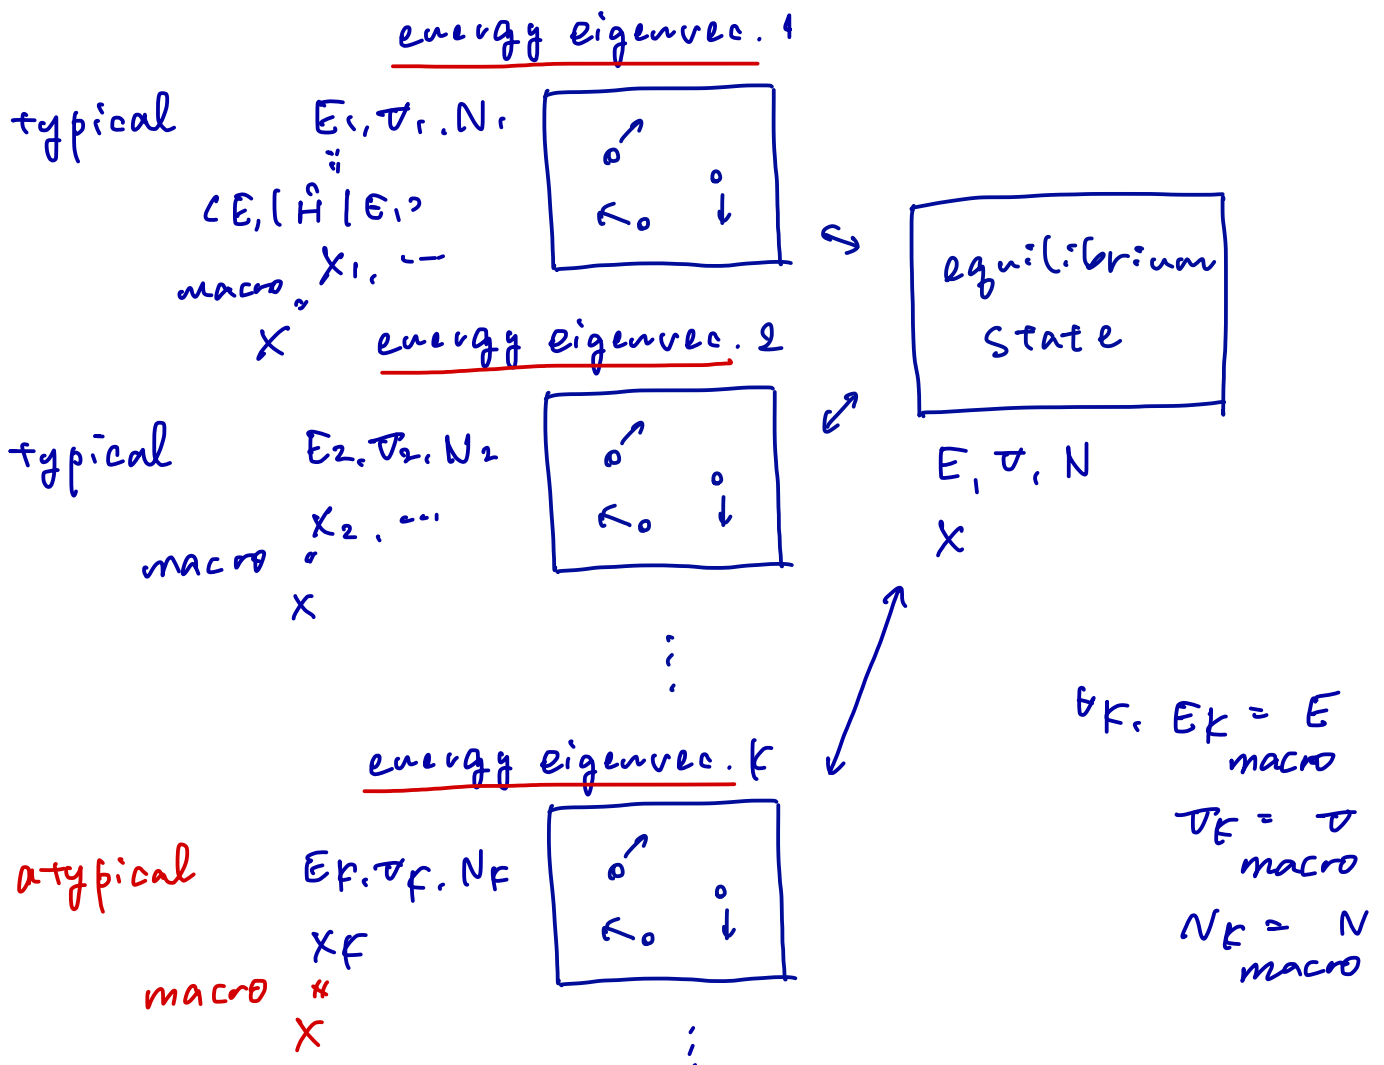 energy eigenvec. 1
typical
E₁, V₁, N₁
=
⟨E₁|Ĥ|E₁⟩
X₁, ...
macro =
X
energy eigenvec. 2
typical
E₂, V₂, N₂
X₂, ...
macro =
X
⋮
energy eigenvec. K
atypical
E_K, V_K, N_K
X_K
macro ≠
X
⋮
equilibrium
state
E, V, N
X
∀K, E_K = E
macro
V_K = V
macro
N_K = N
macro